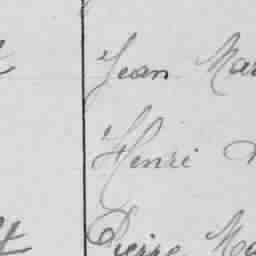 Jean Mar
Henri
Pierre Ma